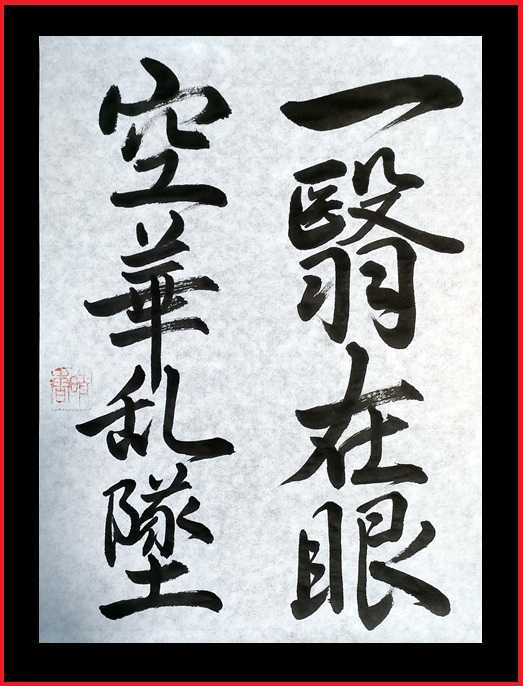 一翳在眼
空華乱墜